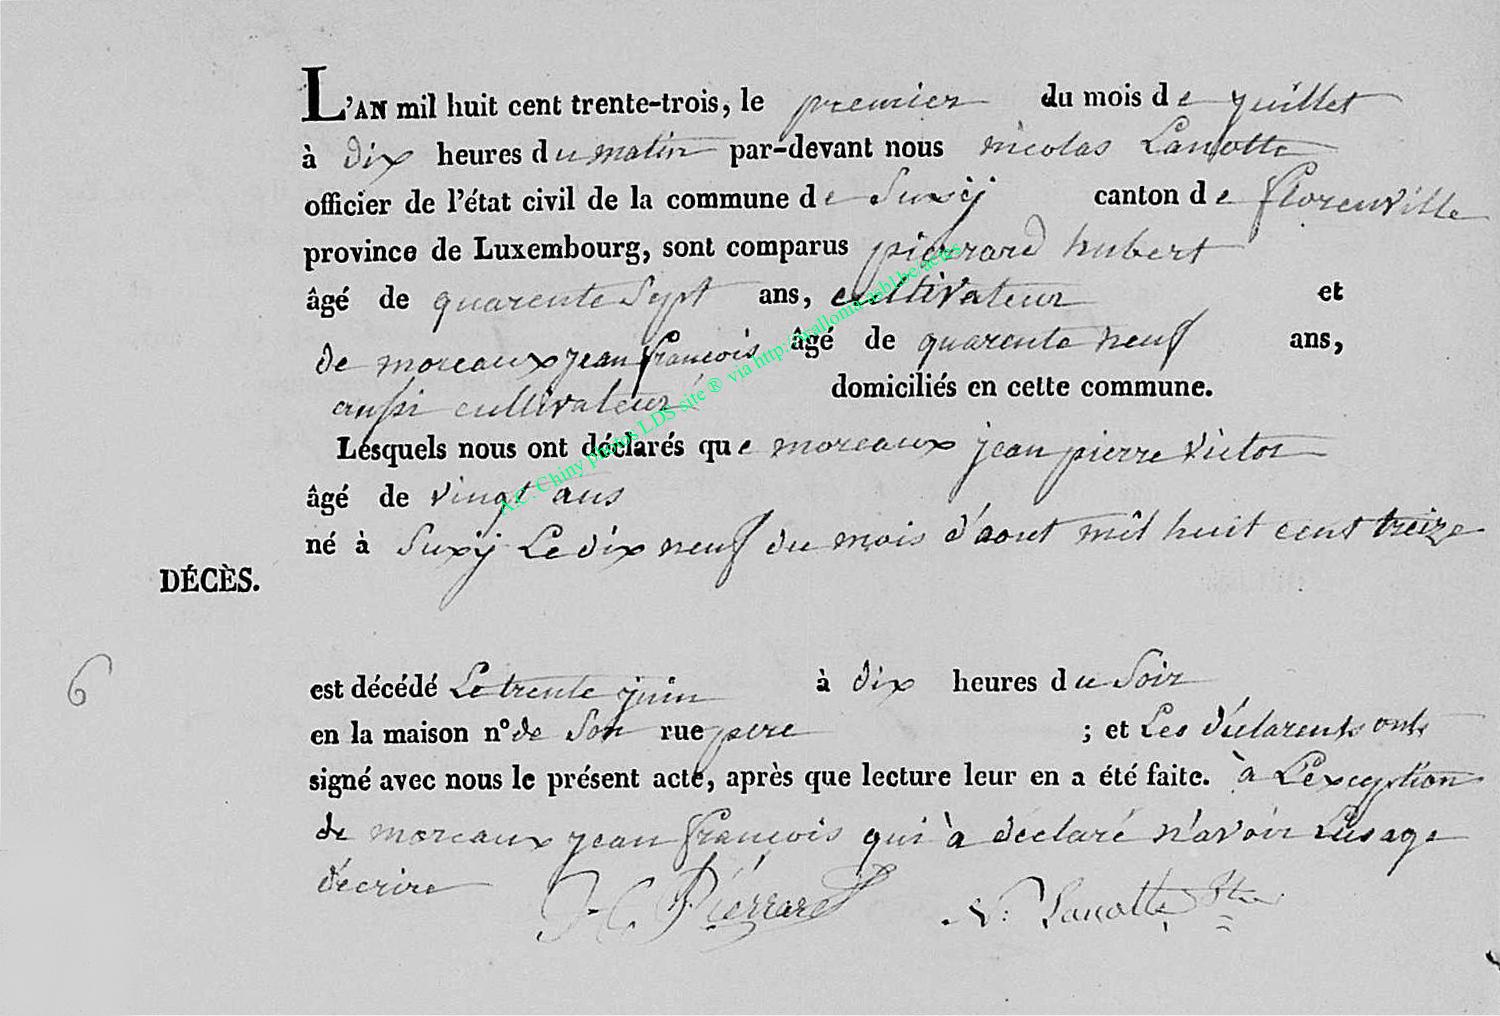 L'AN mil huit cent trente-trois, le premier du mois de juillet
à dix heures du matin par-devant nous nicolas Lanotte
officier de l'état civil de la commune de Suxÿ canton de florenville
province de Luxembourg, sont comparus pierrard hubert
âgé de quarente Sept ans, cultivateur et
de moreaux jean françois âgé de quarente neuf ans,
aussi cultivateur domiciliés en cette commune.
Lesquels nous ont déclarés que moreaux jean pierre victor
âgé de vingt ans
né à Suxÿ Le dix neuf du mois d'aout mil huit cent treize
DÉCÈS.
6
est décédé Le trente juin à dix heures du Soir
en la maison nº de Son rue pere ; et Les déclarents ont
signé avec nous le présent acte, après que lecture leur en a été faite. à L'exception
de moreaux jean françois qui à déclaré n'avoir L'usage
d'écrire H Pierrard N: Lanotte
A.C. Chiny photos LDS site ® via http://wallonia-asbl.be/actes